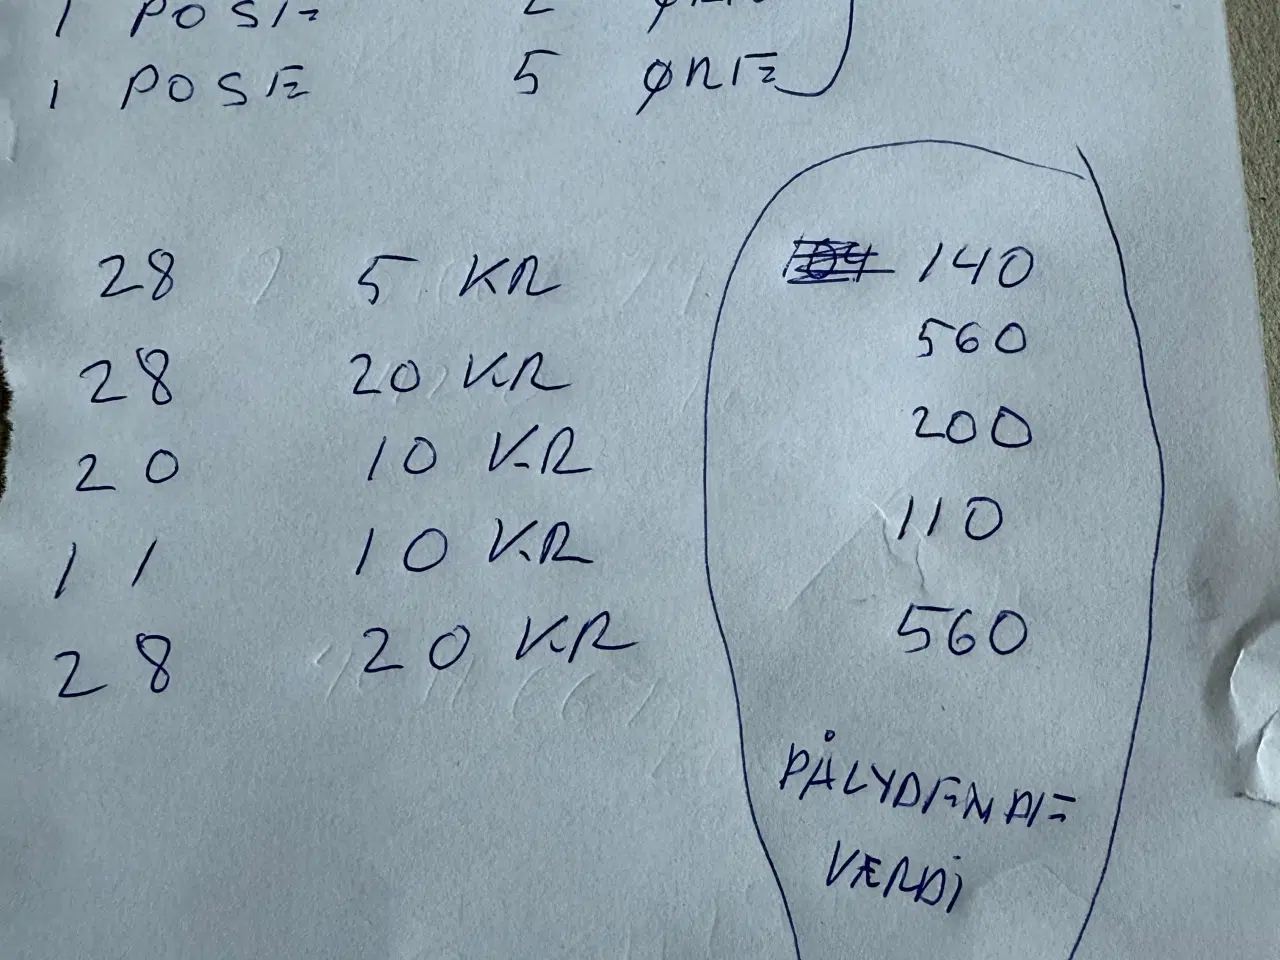 1 POSE 2 ØRE
1 POSE 5 ØRE
28 5 KR 140
28 20 KR 560
20 10 KR 200
11 10 KR 110
28 20 KR 560
PÅLYDENDE
VERDI